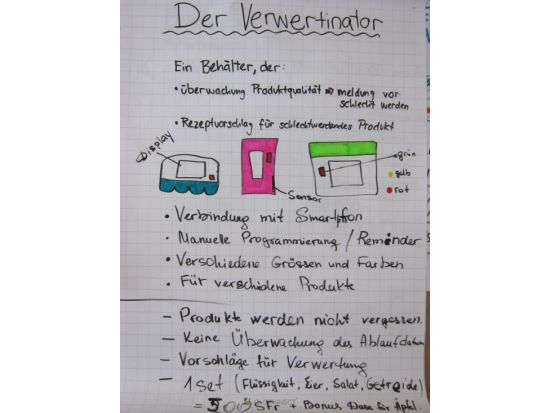 Der Verwertinator
Ein Behälter, der:
• überwachung Produktqualität ⇒ meldung vor
schlecht werden
• Rezeptvorschlag für schlechtwerdendes Produkt
Display
Sensor
grün
gelb
rot
• Verbindung mit Smartpfron
• Manuelle Programmierung / Reminder
• Verschiedene Grössen und Farben
• Für verschidene Produkte
– Produkte werden nicht vergessen.
– Keine Überwachung des Ablaufdatum
– Vorschläge für Verwertung
– 1 Set (Flüssigkit, Eier, Salat, Getreide)
= 500 SFr + Bonus, Dose für Äpfel.